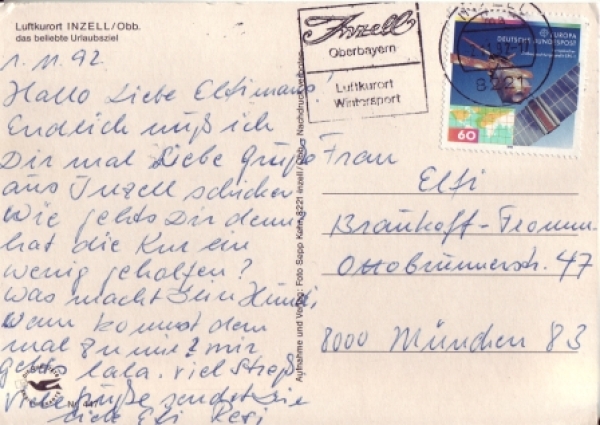 Luftkurort INZELL/Obb.
das beliebte Urlaubsziel
1.11.92
Hallo Liebe Elfimaus!
Endlich muß ich
Dir mal Liebe Grüße
aus Inzell schicken
Wie gehts Dir denn
hat die Kur ein
wenig geholfen?
was macht Dein Hundi,
wann kommst denn
mal zu mir? mir
gehts lala. viel Streß
Viele Grüße sendet
Aufnahme und Verlag: Foto Sepp Kahn, 8221 Inzell/Obb. Nachdruck verboten
Inzell
Oberbayern
Luftkurort
Wintersport
INZELL
8221
EUROPA
DEUTSCHE BUNDESPOST
60
Frau
Elfi
Braukoff-
Ottobrunnerstr. 47
8000 München 83